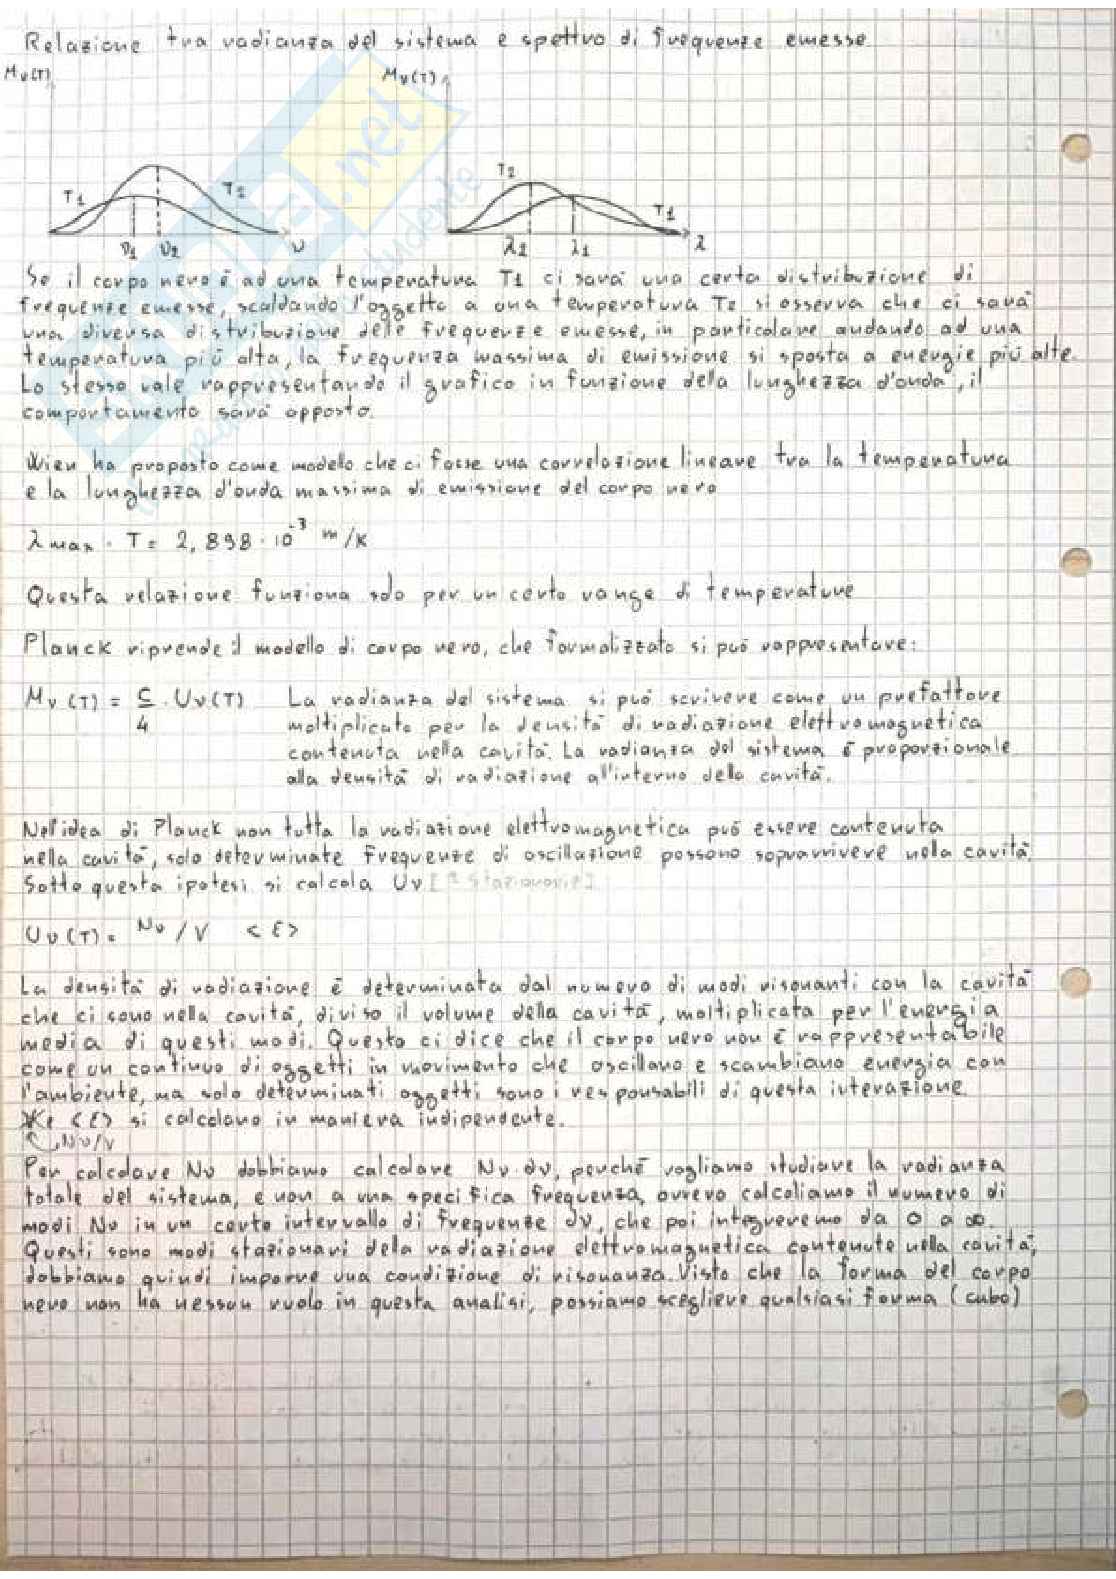 Relazione tra radianza del sistema e spettro di frequenze emesse
Mν(T) Mν(T)
T1 T2 T2 T1
ν1 ν2 ν λ2 λ1 λ
Se il corpo nero è ad una temperatura T1 ci sarà una certa distribuzione di
frequenze emesse, scaldando l'oggetto a una temperatura T2 si osserva che ci sarà
una diversa distribuzione delle frequenze emesse, in particolare andando ad una
temperatura più alta, la frequenza massima di emissione si sposta a energie più alte.
Lo stesso vale rappresentando il grafico in funzione della lunghezza d'onda, il
comportamento sarà opposto.
Wien ha proposto come modello che ci fosse una correlazione lineare tra la temperatura
e la lunghezza d'onda massima di emissione del corpo nero
λmax · T = 2,898 · 10^-3 m/K
Questa relazione funziona solo per un certo range di temperature
Planck riprende il modello di corpo nero, che formalizzato si può rappresentare:
Mν(T) = c/4 · Uν(T) La radianza del sistema si può scrivere come un prefattore
moltiplicato per la densità di radiazione elettromagnetica
contenuta nella cavità. La radianza del sistema è proporzionale
alla densità di radiazione all'interno della cavità.
Nell'idea di Planck non tutta la radiazione elettromagnetica può essere contenuta
nella cavità, solo determinate frequenze di oscillazione possono sopravvivere nella cavità
Sotto questa ipotesi si calcola Uν
Uν(T) = Nν/V <E>
La densità di radiazione è determinata dal numero di modi risonanti con la cavità
che ci sono nella cavità, diviso il volume della cavità, moltiplicata per l'energia
media di questi modi. Questo ci dice che il corpo nero non è rappresentabile
come un continuo di oggetti in movimento che oscillano e scambiano energia con
l'ambiente, ma solo determinati oggetti sono i responsabili di questa interazione.
e <E> si calcolano in maniera indipendente.
Nν/V
Per calcolare Nν dobbiamo calcolare Nν·dν, perché vogliamo studiare la radianza
totale del sistema, e non a una specifica frequenza, ovvero calcoliamo il numero di
modi Nν in un certo intervallo di frequenze dν, che poi integreremo da 0 a ∞.
Questi sono modi stazionari della radiazione elettromagnetica contenute nella cavità,
dobbiamo quindi imporre una condizione di risonanza. Visto che la forma del corpo
nero non ha nessun ruolo in questa analisi, possiamo scegliere qualsiasi forma (cubo)